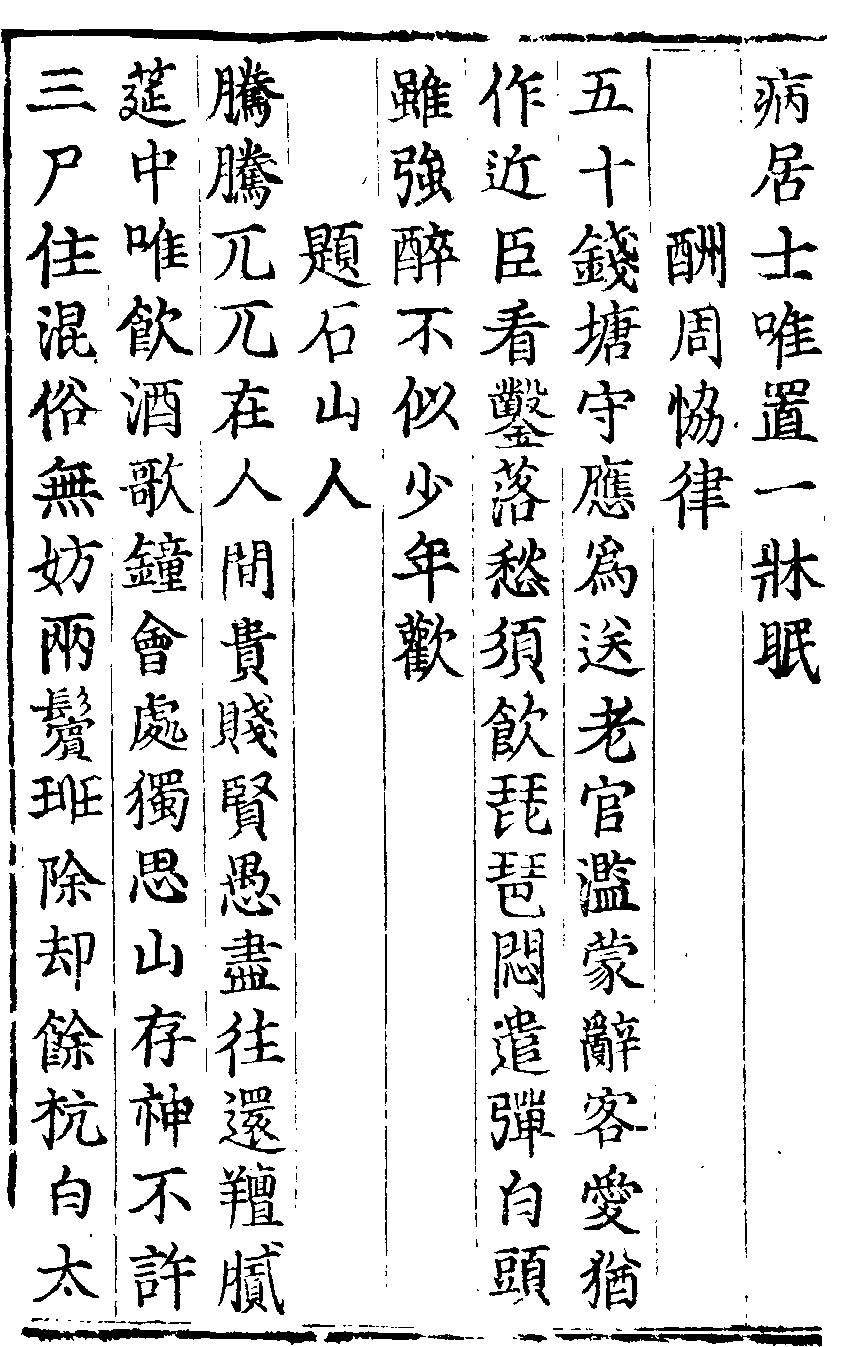 病居士唯置一牀眠
酬周協律
五十錢塘守應為送老官濫蒙辭客愛猶
作近臣看鑿落愁須飲琵琶悶遣彈白頭
雖強醉不似少年歡
題石山人
騰騰兀兀在人間貴賤賢愚盡往還羶膩
莚中唯飲酒歌鐘會處獨思山存神不許
三尸住混俗無妨兩鬢班除却餘杭白太